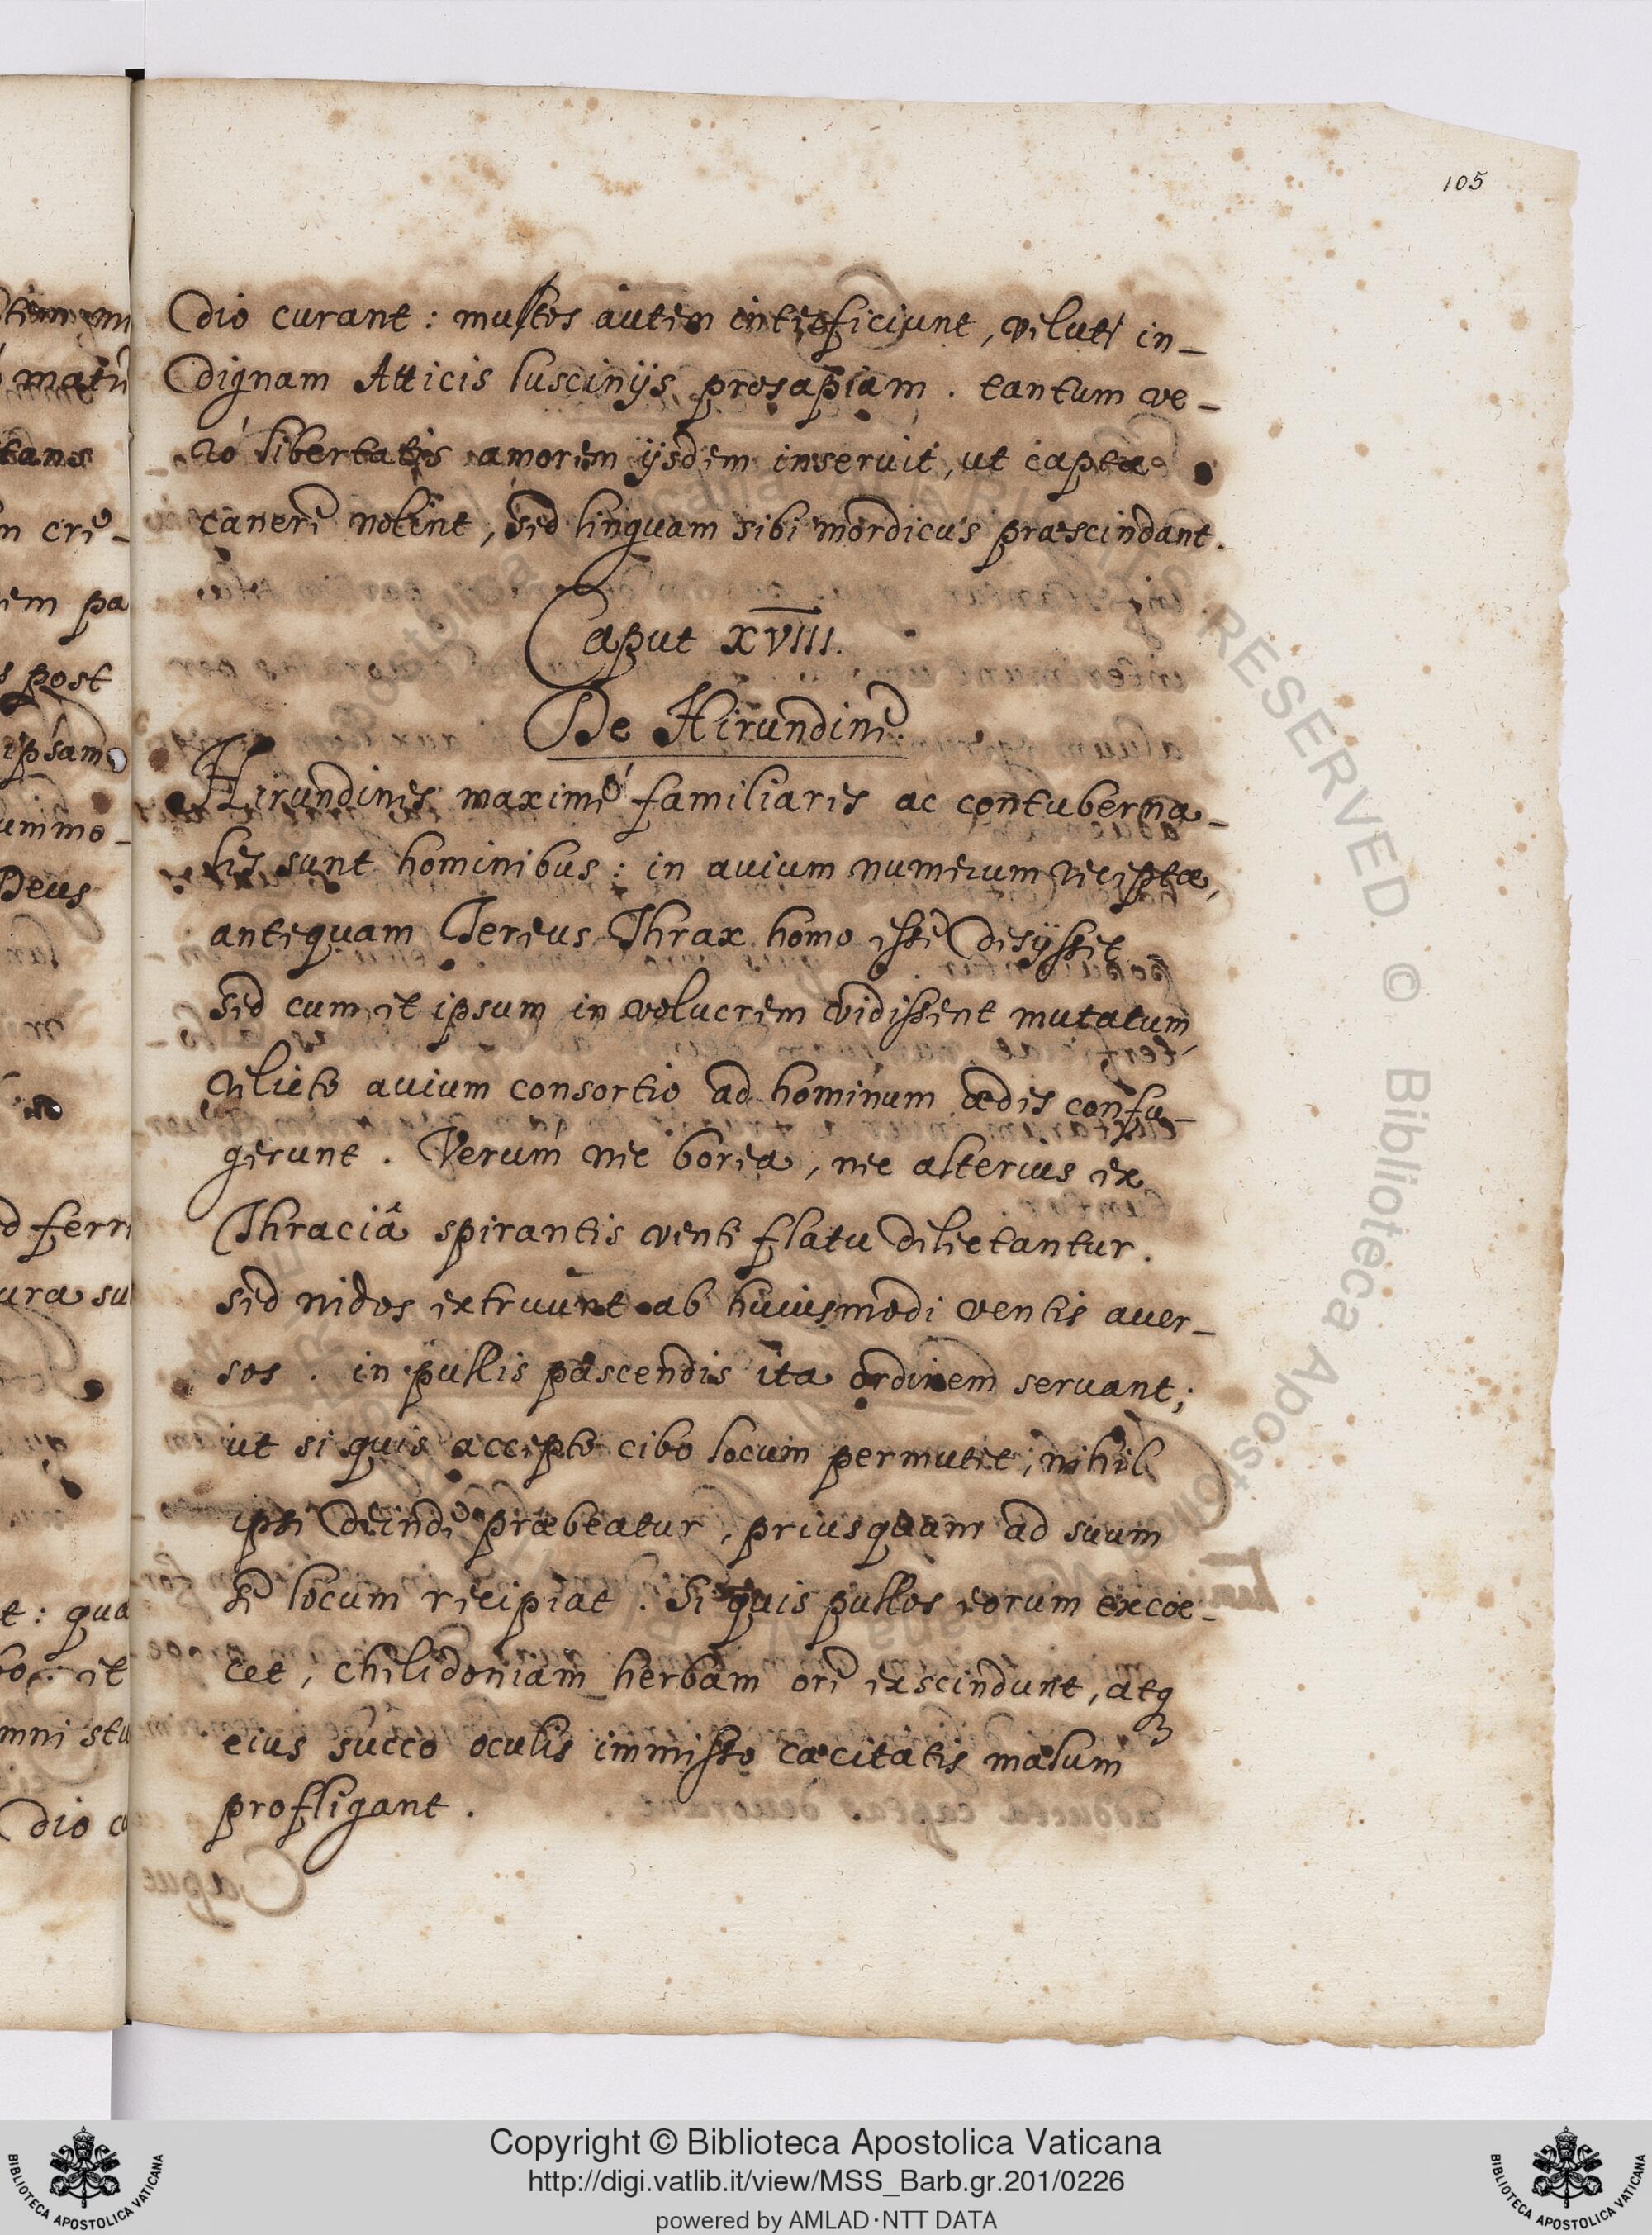 105
dio curant : multos autem interficiunt, velut in-
dignam Atticis lusciniĳs prosapiam . tantum ve-
rò libertatis amorem ĳsdem inseruit, ut captæ
canere nolint, sed linguam sibi mordicus præscindant.
Caput XVIII.
De Hirundine.
Hirundines maximè familiares ac contuberna-
les sunt hominibus : in auium numerum receptæ,
antequam Tereus Thrax homo esse desĳsset
sed cum et ipsum in volucrem vidissent mutatum,
relicto auium consortio ad hominum ædes confu-
gerunt . Verum nec borea, nec alterius ex
Thraciâ spirantis venti flatu delectantur.
sed nidos extruunt ab huiusmodi ventis auer-
sos . in pullis pascendis ita ordinem seruant;
ut si quis accepto cibo locum permutet, nihil
ipsi deinde præbeatur, priusquam ad suum
se locum recipiat . Si quis pullos eorum excoe-
cet, chelidoniam herbam ore exscindunt, atq3
eius succo oculis immisso cæcitatis malum
profligant .
Copyright © Biblioteca Apostolica Vaticana
http://digi.vatlib.it/view/MSS_Barb.gr.201/0226
powered by AMLAD·NTT DATA
BIBLIOTECA APOSTOLICA VATICANA
BIBLIOTECA APOSTOLICA VATICANA